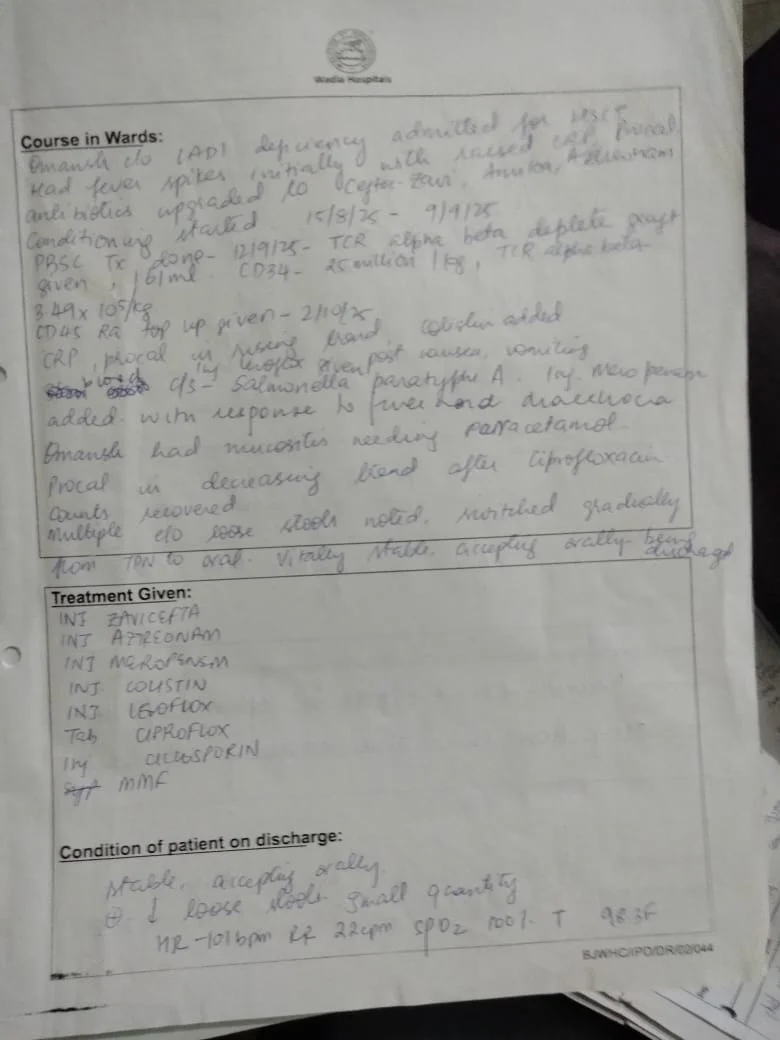 Wadia Hospitals
Course in Wards:
Omansh c/o LAD1 deficiency admitted for HSCT
Had fever spikes initially with raised CRP, Procal
antibiotics upgraded to Ceftaz-Zavi, Amika, Aztreonam
Conditioning started 15/8/25 - 9/9/25
PBSC Tx done - 12/9/25 - TCR alpha beta deplete graft
given, 161ml. CD34 - 25 million/kg, TCR alpha beta
3.49 x 10⁵/kg
CD45 Ra top up given - 2/10/25
CRP, procal in rising trend, colistin added
Inj levoflox given post nausea, vomiting
Blood c/s - Salmonella paratyphi A. Inj. Meropenem
added with response to fever and diarrhoea
Omansh had mucositis needing paracetamol.
Procal in decreasing trend after Ciprofloxacin
Counts recovered
Multiple c/o loose stools noted, switched gradually
from TPN to oral. Vitally stable, accepting orally being
discharged
Treatment Given:
INJ ZAVICEFTA
INJ AZTREONAM
INJ MEROPENEM
INJ COLISTIN
INJ LEVOFLOX
Tab CIPROFLOX
Inj CICLOSPORIN
MMF
Condition of patient on discharge:
Stable, accepting orally.
↓ loose stools small quantity
HR - 101bpm RR 22cpm SPO2 100% T 98.3F
BJWHC/IPD/DR/02/044